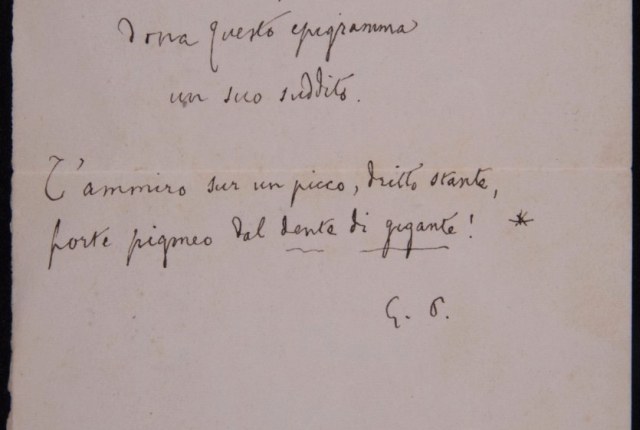 Dona questo epigramma
un suo suddito.
T'ammiro sur un picco, dritto stante,
forte pigmeo dal dente di gigante! *
G. P.